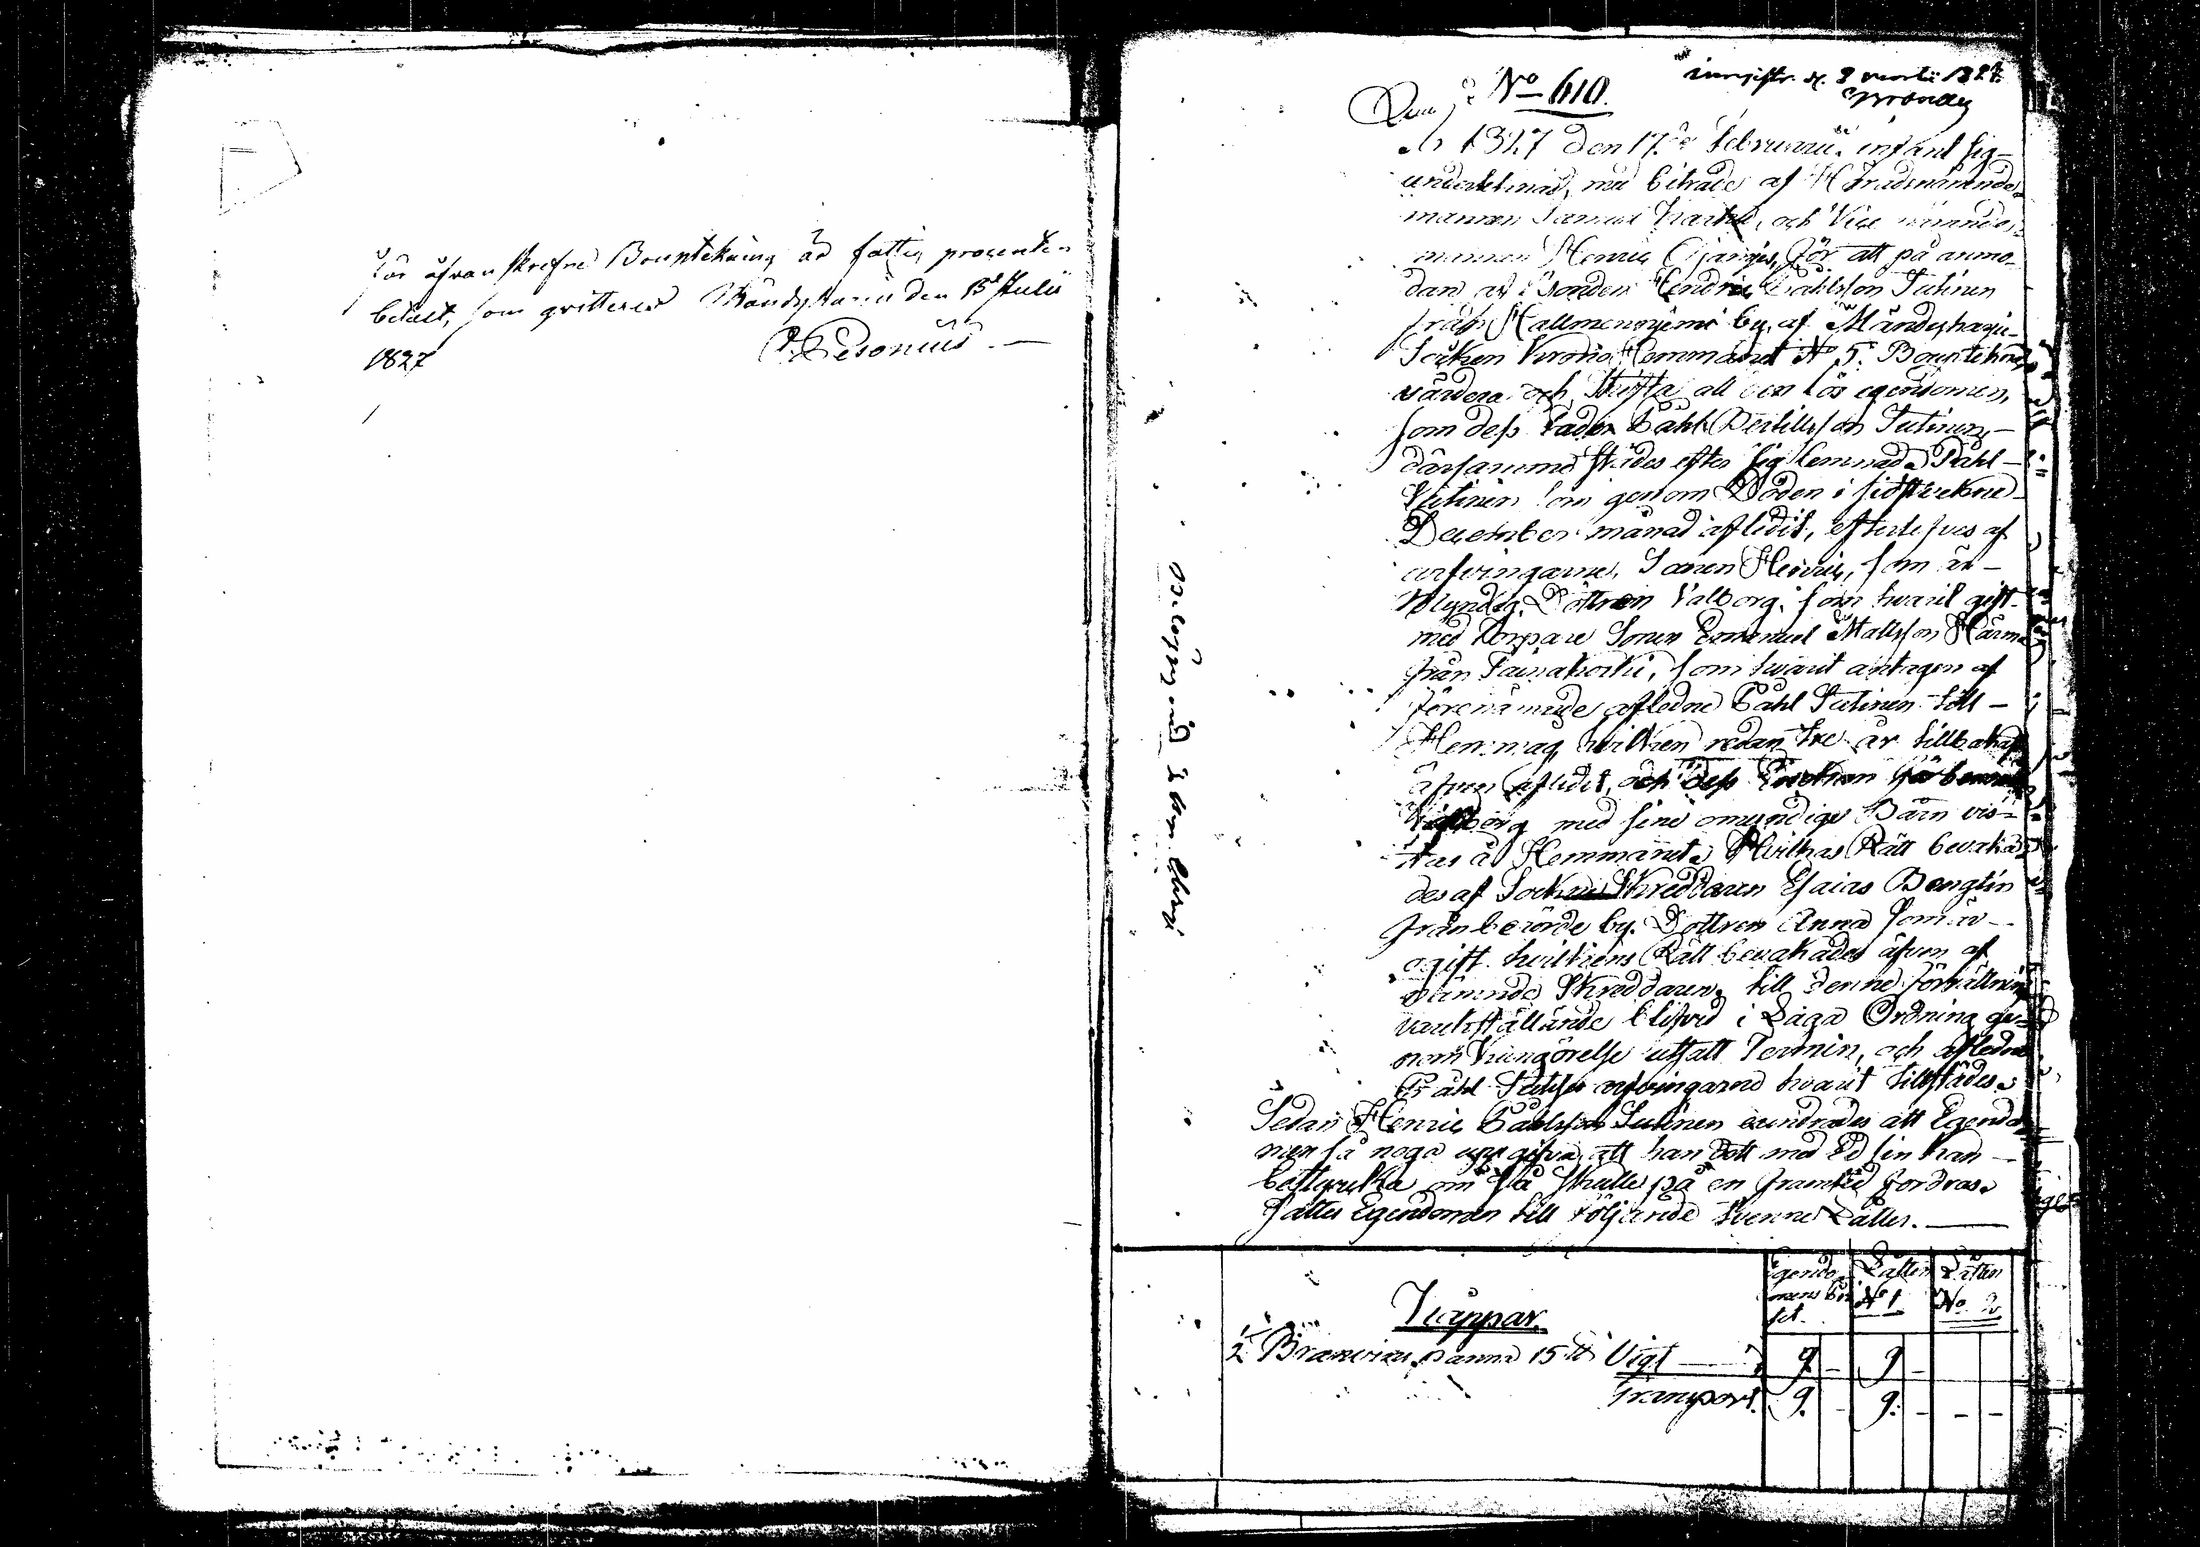 För åfvanskrefne Bouptekning är fattig procenten
betalt, som qvitteras Mändyharju den 13 Julii
1827 Pesonius
No 610.
ingift. d. 8 martii 1827.
Åhr 1827 den 17de Februarii infant sig
undertecknad, med biträde af Häradsnämnde
mannen och Vice nämnde
mannen Henric för att på anmo-
dan af Bonden Hendric Påhlsson Sutinen
från Hallmenniemi by, af Mändyharju
Socken Krono Hemmanet No 5. Boupteckna
värdera och skifta all den lös egendomen,
som dess Fader Påhl Bertillsson Sutinen,
därsamma städes efter sig lemnade. Påhl
Sutinen som genom Döden i sidstvekne
December månad aflidit, efterlefves af
arfvingarne, Sonen Henric, som är
Myndig, Dottren Valborg, som hvarit gift
med Torpare Sonen Emanuel Mattsson Härmä
från Painakorki, som hwarit antagen af
förenämnde afledne Påhl Sutinen till
Hemmag hvilken redan tre år tillbaka
äfven afledit, och dess Enckan
Walborg med sine omyndige Barn vis-
tas å Hemmanet. Hvilkas Rätt bevaka
des af Sockne Skreddaren Esaias Bengtin
från berörde by. Dottren Anna som är
ogift hvilkens Rätt bevakades äfven af
nämnde Skreddaren, till denne Förrättning
värckställande blifvid i Laga Ordning ge-
nom Kungörelse utsatt Termin, och afledne
Påhl Sutises arfvingarne hwarit tillstädes.
Sedan Henric Påhlsson Sutinen erindrades att Egendo-
men så noga uppgifva, att han dett med Ed sin kan
bestyrka om så skulle på en framtid fordras.
sattes Egendomen till följande tvenne Låtter.
Egendo Låtten Låtten
mens No 1 No 2
Koppar.
1 Brännvins panna 15 ℔ Vigt 9 - 9 -
Transport. 9. - 9. - - -